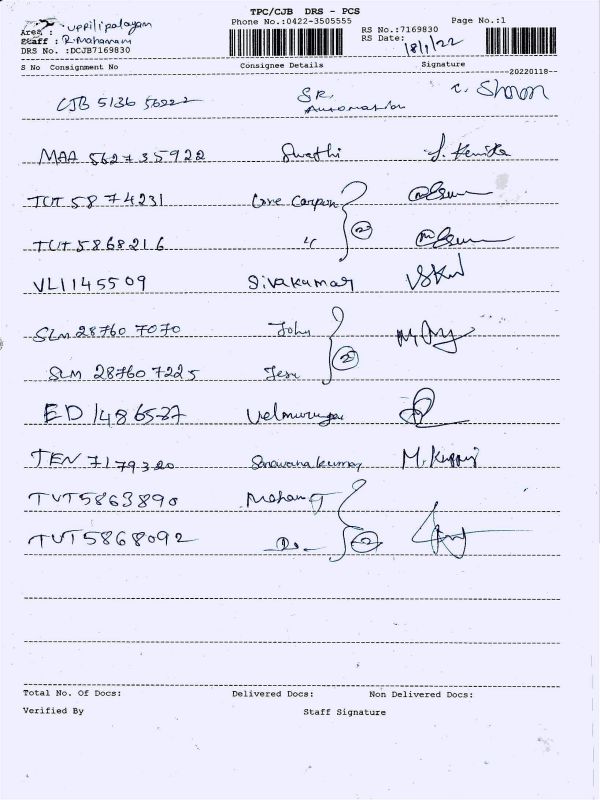 TPC/CJB DRS - PCS
Area : uppilipalayam
Phone No.:0422-3505555
Page No.:1
Staff : R. Mahamani
RS No.:7169830
RS Date: 18/1/22
DRS No. :DCJB7169830
S No Consignment No Consignee Details Signature
--20220118--
CJB 5136 56222 SR. Automation
MAA 562735922 Swathi
TUT 5874231 Line Carpon
TUT 5868216 " (2)
VL1145509 Sivakumar
SLM 28760 7070 John
SLM 28760 7225 Jesu (2)
ED 1486527 Velmurugan
TEN 7179320 Saravanakumar
TUT5863890 Mohan
TUT5868092 Do (2)
Total No. Of Docs: Delivered Docs: Non Delivered Docs:
Verified By Staff Signature